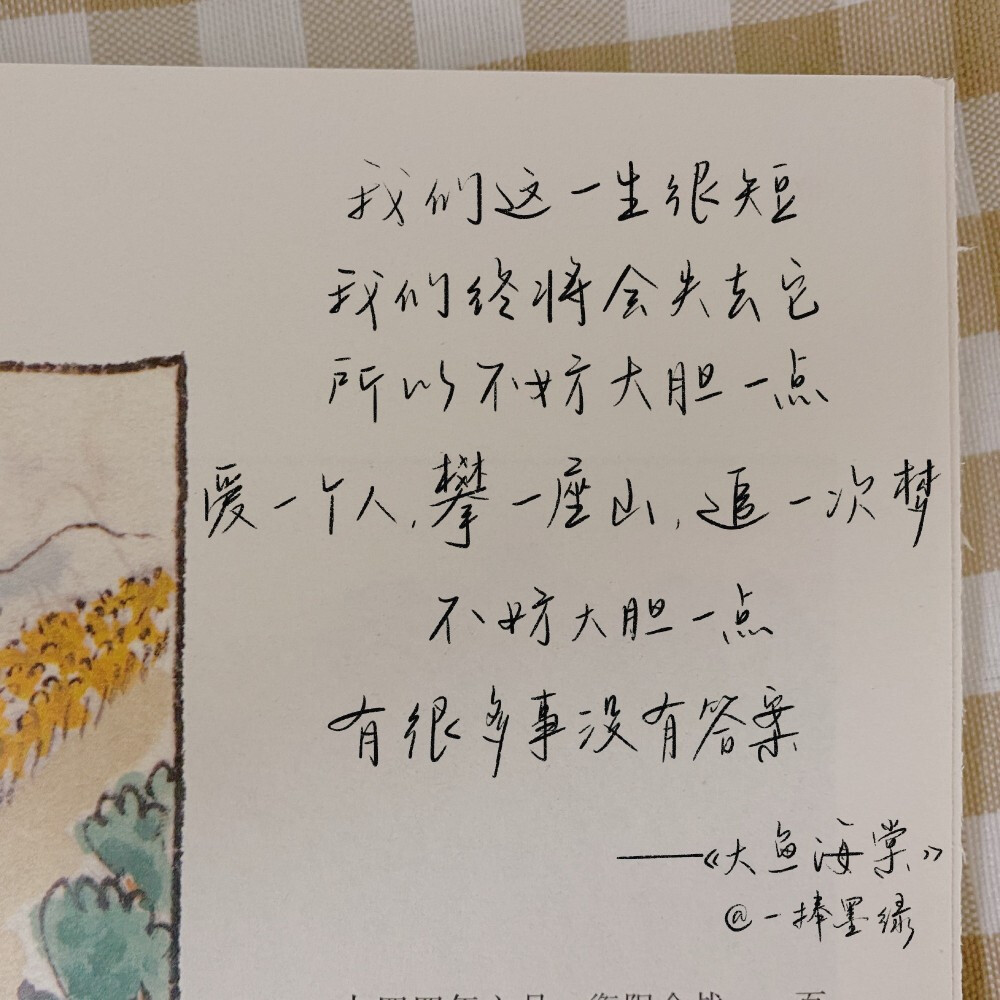 我们这一生很短
我们终将会失去它
所以不妨大胆一点
爱一个人,攀一座山,追一次梦
不妨大胆一点
有很多事没有答案
——《大鱼海棠》
@一捧墨绿